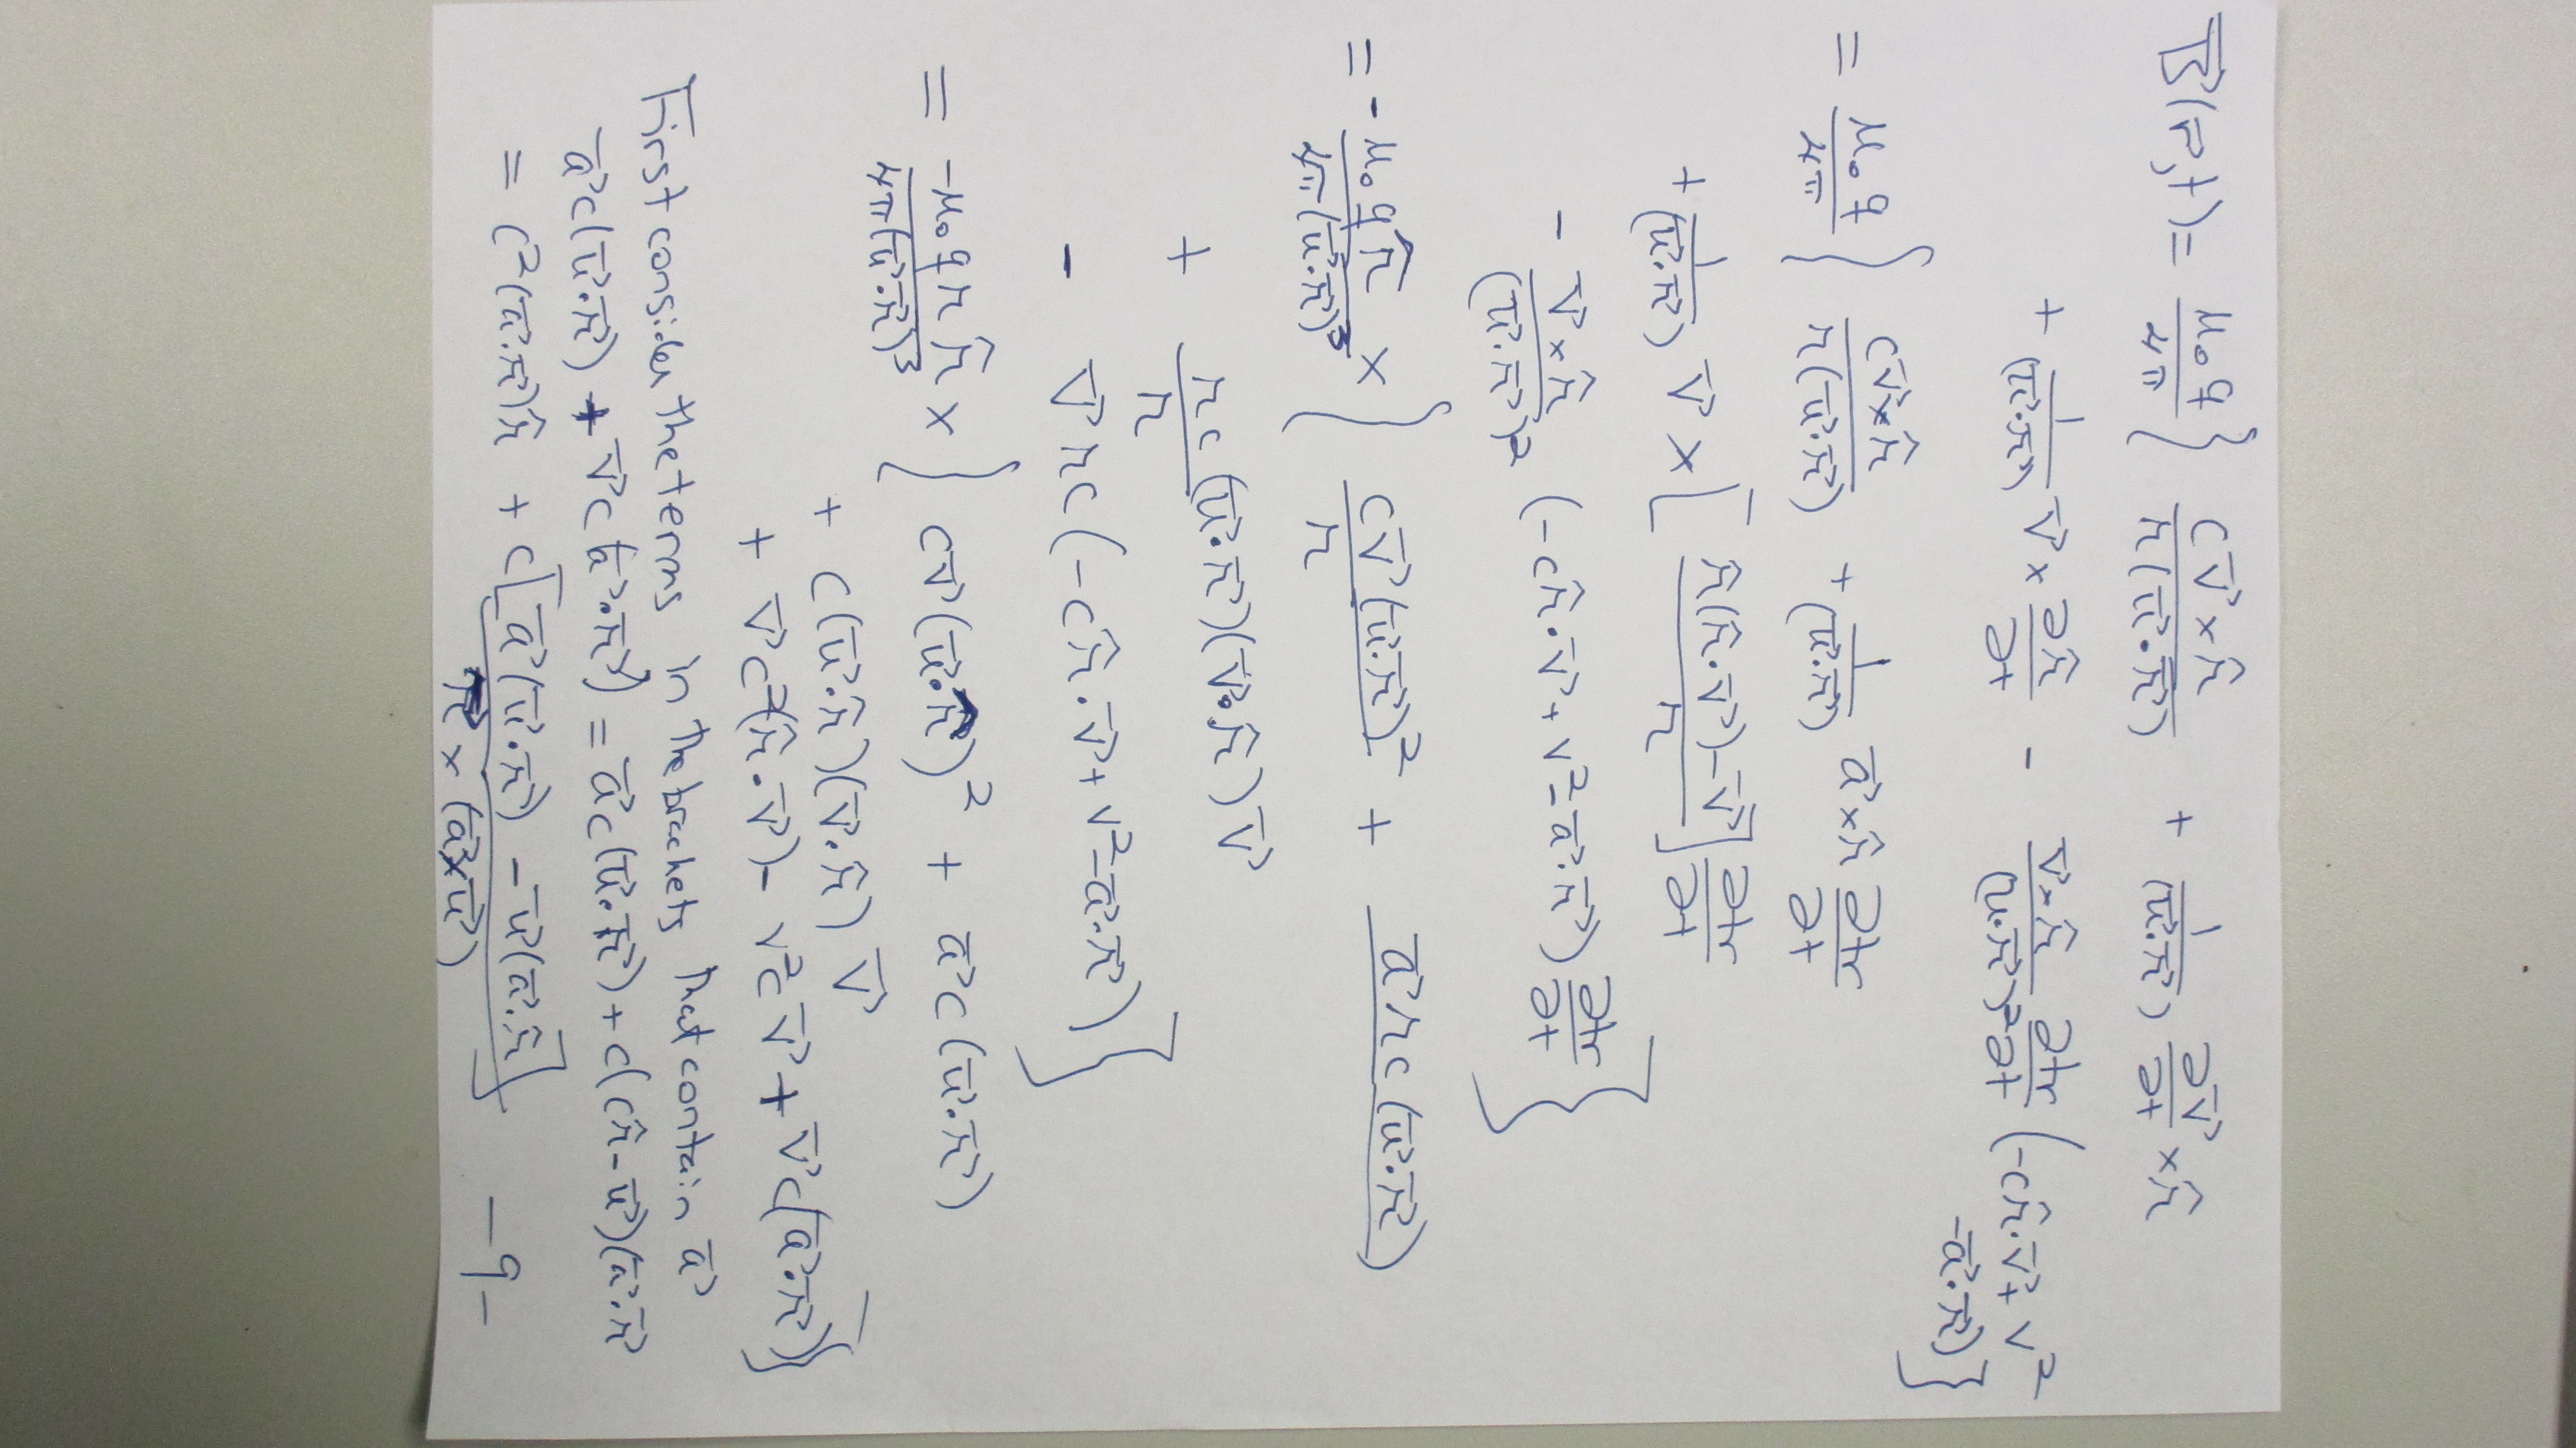 B⃗(r⃗,t) = μ₀q/4π { c v⃗ × r̂ / r(u⃗·r⃗) + 1/(u⃗·r⃗) ∂v⃗/∂t × r̂
+ 1/(u⃗·r⃗) v⃗ × ∂r̂/∂t - v⃗×r̂/(u⃗·r⃗)² ∂tr/∂t (-c r̂·v⃗ + v²
-a⃗·r⃗) }
= μ₀q/4π { c v⃗×r̂ / r(u⃗·r⃗) + 1/(u⃗·r⃗) a⃗×r̂ ∂tr/∂t
+ 1/(u⃗·r⃗) v⃗ × [ r̂(r̂·v⃗)-v⃗ / r ] ∂tr/∂t
- v⃗×r̂/(u⃗·r⃗)² (-c r̂·v⃗ + v² - a⃗·r⃗) ∂tr/∂t }
= - μ₀q r̂ / 4π(u⃗·r⃗)³ × { c v⃗(u⃗·r⃗)² / r + a⃗ r c (u⃗·r⃗)
+ r c / r (u⃗·r⃗)(v⃗·r̂) v⃗
- v⃗ r c (-c r̂·v⃗ + v² - a⃗·r⃗) }
= -μ₀ q r r̂ / 4π(u⃗·r⃗)³ × { c v⃗(u⃗·r̂)² + a⃗ c (u⃗·r⃗)
+ c(u⃗·r̂)(v⃗·r̂) v⃗
+ v⃗ c²(r̂·v⃗) - v² c v⃗ + v⃗ c(a⃗·r⃗) }
First consider the terms in the brackets that contain a⃗
a⃗ c(u⃗·r⃗) + v⃗ c (a⃗·r⃗) = a⃗ c (u⃗·r⃗) + c(c r̂ - u⃗)(a⃗·r⃗)
= c²(a⃗·r⃗) r̂ + c[ a⃗(u⃗·r⃗) - u⃗(a⃗·r⃗) ]
r⃗ × (a⃗×u⃗)
-9-